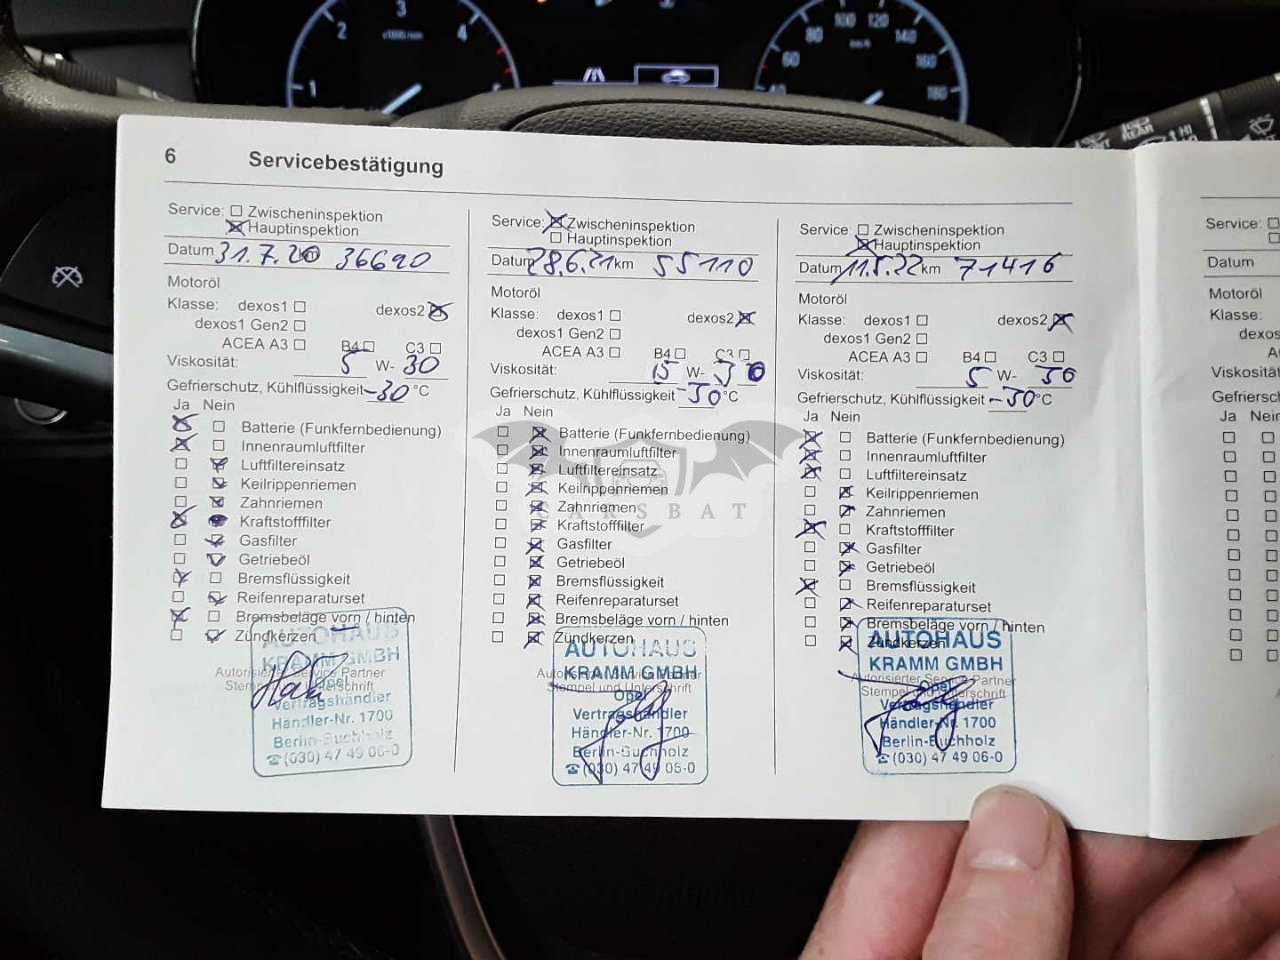 1 2 3 4 x1000/min
60 80 100 120 140 160 180 km/h
REAR HI
6 Servicebestätigung
Service: Zwischeninspektion
Hauptinspektion
Datum 31.7.20 36690
Motoröl
Klasse: dexos1 dexos2
dexos1 Gen2
ACEA A3 B4 C3
Viskosität: 5 W- 30
Gefrierschutz, Kühlflüssigkeit -30 °C
Ja Nein
Batterie (Funkfernbedienung)
Innenraumluftfilter
Luftfiltereinsatz
Keilrippenriemen
Zahnriemen
Kraftstofffilter
Gasfilter
Getriebeöl
Bremsflüssigkeit
Reifenreparaturset
Bremsbeläge vorn / hinten
Zündkerzen
Autorisierter Service Partner
Stempel und Unterschrift
AUTOHAUS
KRAMM GMBH
Opel
Vertragshändler
Händler-Nr. 1700
Berlin-Buchholz
☎(030) 47 49 06-0
Service: Zwischeninspektion
Hauptinspektion
Datum 28.6.21 km 55110
Motoröl
Klasse: dexos1 dexos2
dexos1 Gen2
ACEA A3 B4 C3
Viskosität: W- 30
Gefrierschutz, Kühlflüssigkeit -30 °C
Ja Nein
Batterie (Funkfernbedienung)
Innenraumluftfilter
Luftfiltereinsatz
Keilrippenriemen
Zahnriemen
Kraftstofffilter
Gasfilter
Getriebeöl
Bremsflüssigkeit
Reifenreparaturset
Bremsbeläge vorn / hinten
Zündkerzen
Autorisierter Service Partner
Stempel und Unterschrift
AUTOHAUS
KRAMM GMBH
Opel
Vertragshändler
Händler-Nr. 1700
Berlin-Buchholz
☎(030) 47 49 06-0
CARSBAT
Service: Zwischeninspektion
Hauptinspektion
Datum 11.5.22 km 71416
Motoröl
Klasse: dexos1 dexos2
dexos1 Gen2
ACEA A3 B4 C3
Viskosität: 5 W- 30
Gefrierschutz, Kühlflüssigkeit -30 °C
Ja Nein
Batterie (Funkfernbedienung)
Innenraumluftfilter
Luftfiltereinsatz
Keilrippenriemen
Zahnriemen
Kraftstofffilter
Gasfilter
Getriebeöl
Bremsflüssigkeit
Reifenreparaturset
Bremsbeläge vorn / hinten
Zündkerzen
Autorisierter Service Partner
Stempel und Unterschrift
AUTOHAUS
KRAMM GMBH
Opel
Vertragshändler
Händler-Nr. 1700
Berlin-Buchholz
☎(030) 47 49 06-0
Service:
Datum
Motoröl
Klasse:
dexos
A
Viskosität
Gefriersc
Ja Nein